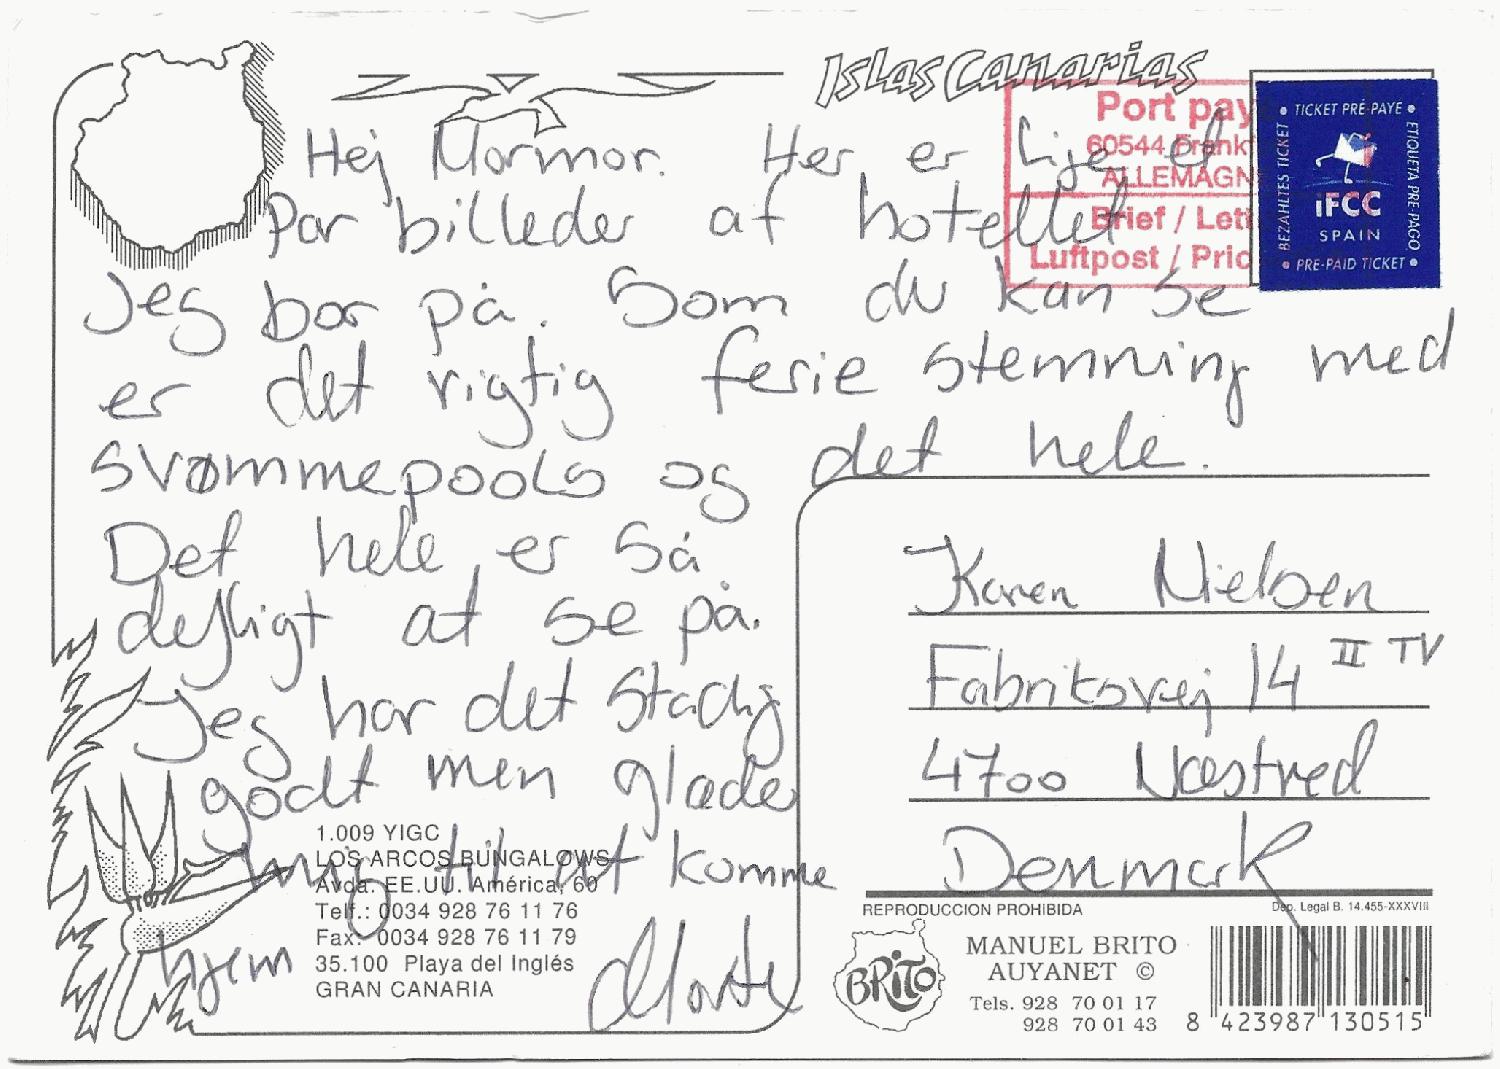 Islas Canarias
Port pay
60544 Frank
ALLEMAGN
Brief / Lett
Luftpost / Pric
TICKET PRÉ-PAYE
ETIQUETA PRE-PAGO
BEZAHLTES TICKET
iFCC
SPAIN
PRE-PAID TICKET
Hej Mormor. Her er lige et
Par billeder af hotellet
Jeg bor på. Som du kan se
er det rigtig ferie stemning med
svømmepools og det hele.
Det hele er så
dejligt at se på.
Jeg har det stadig
godt men glæder
mig til at komme
hjem
Karen Nielsen
Fabriksvej 14 II TV
4700 Næstved
Denmark
1.009 YIGC
LOS ARCOS BUNGALOWS
Avda. EE.UU. América, 60
Telf.: 0034 928 76 11 76
Fax: 0034 928 76 11 79
35.100 Playa del Inglés
GRAN CANARIA
REPRODUCCION PROHIBIDA
Dep. Legal B. 14.455-XXXVIII
BRITO
MANUEL BRITO
AUYANET ©
Tels. 928 70 01 17
928 70 01 43
8 423987 130515